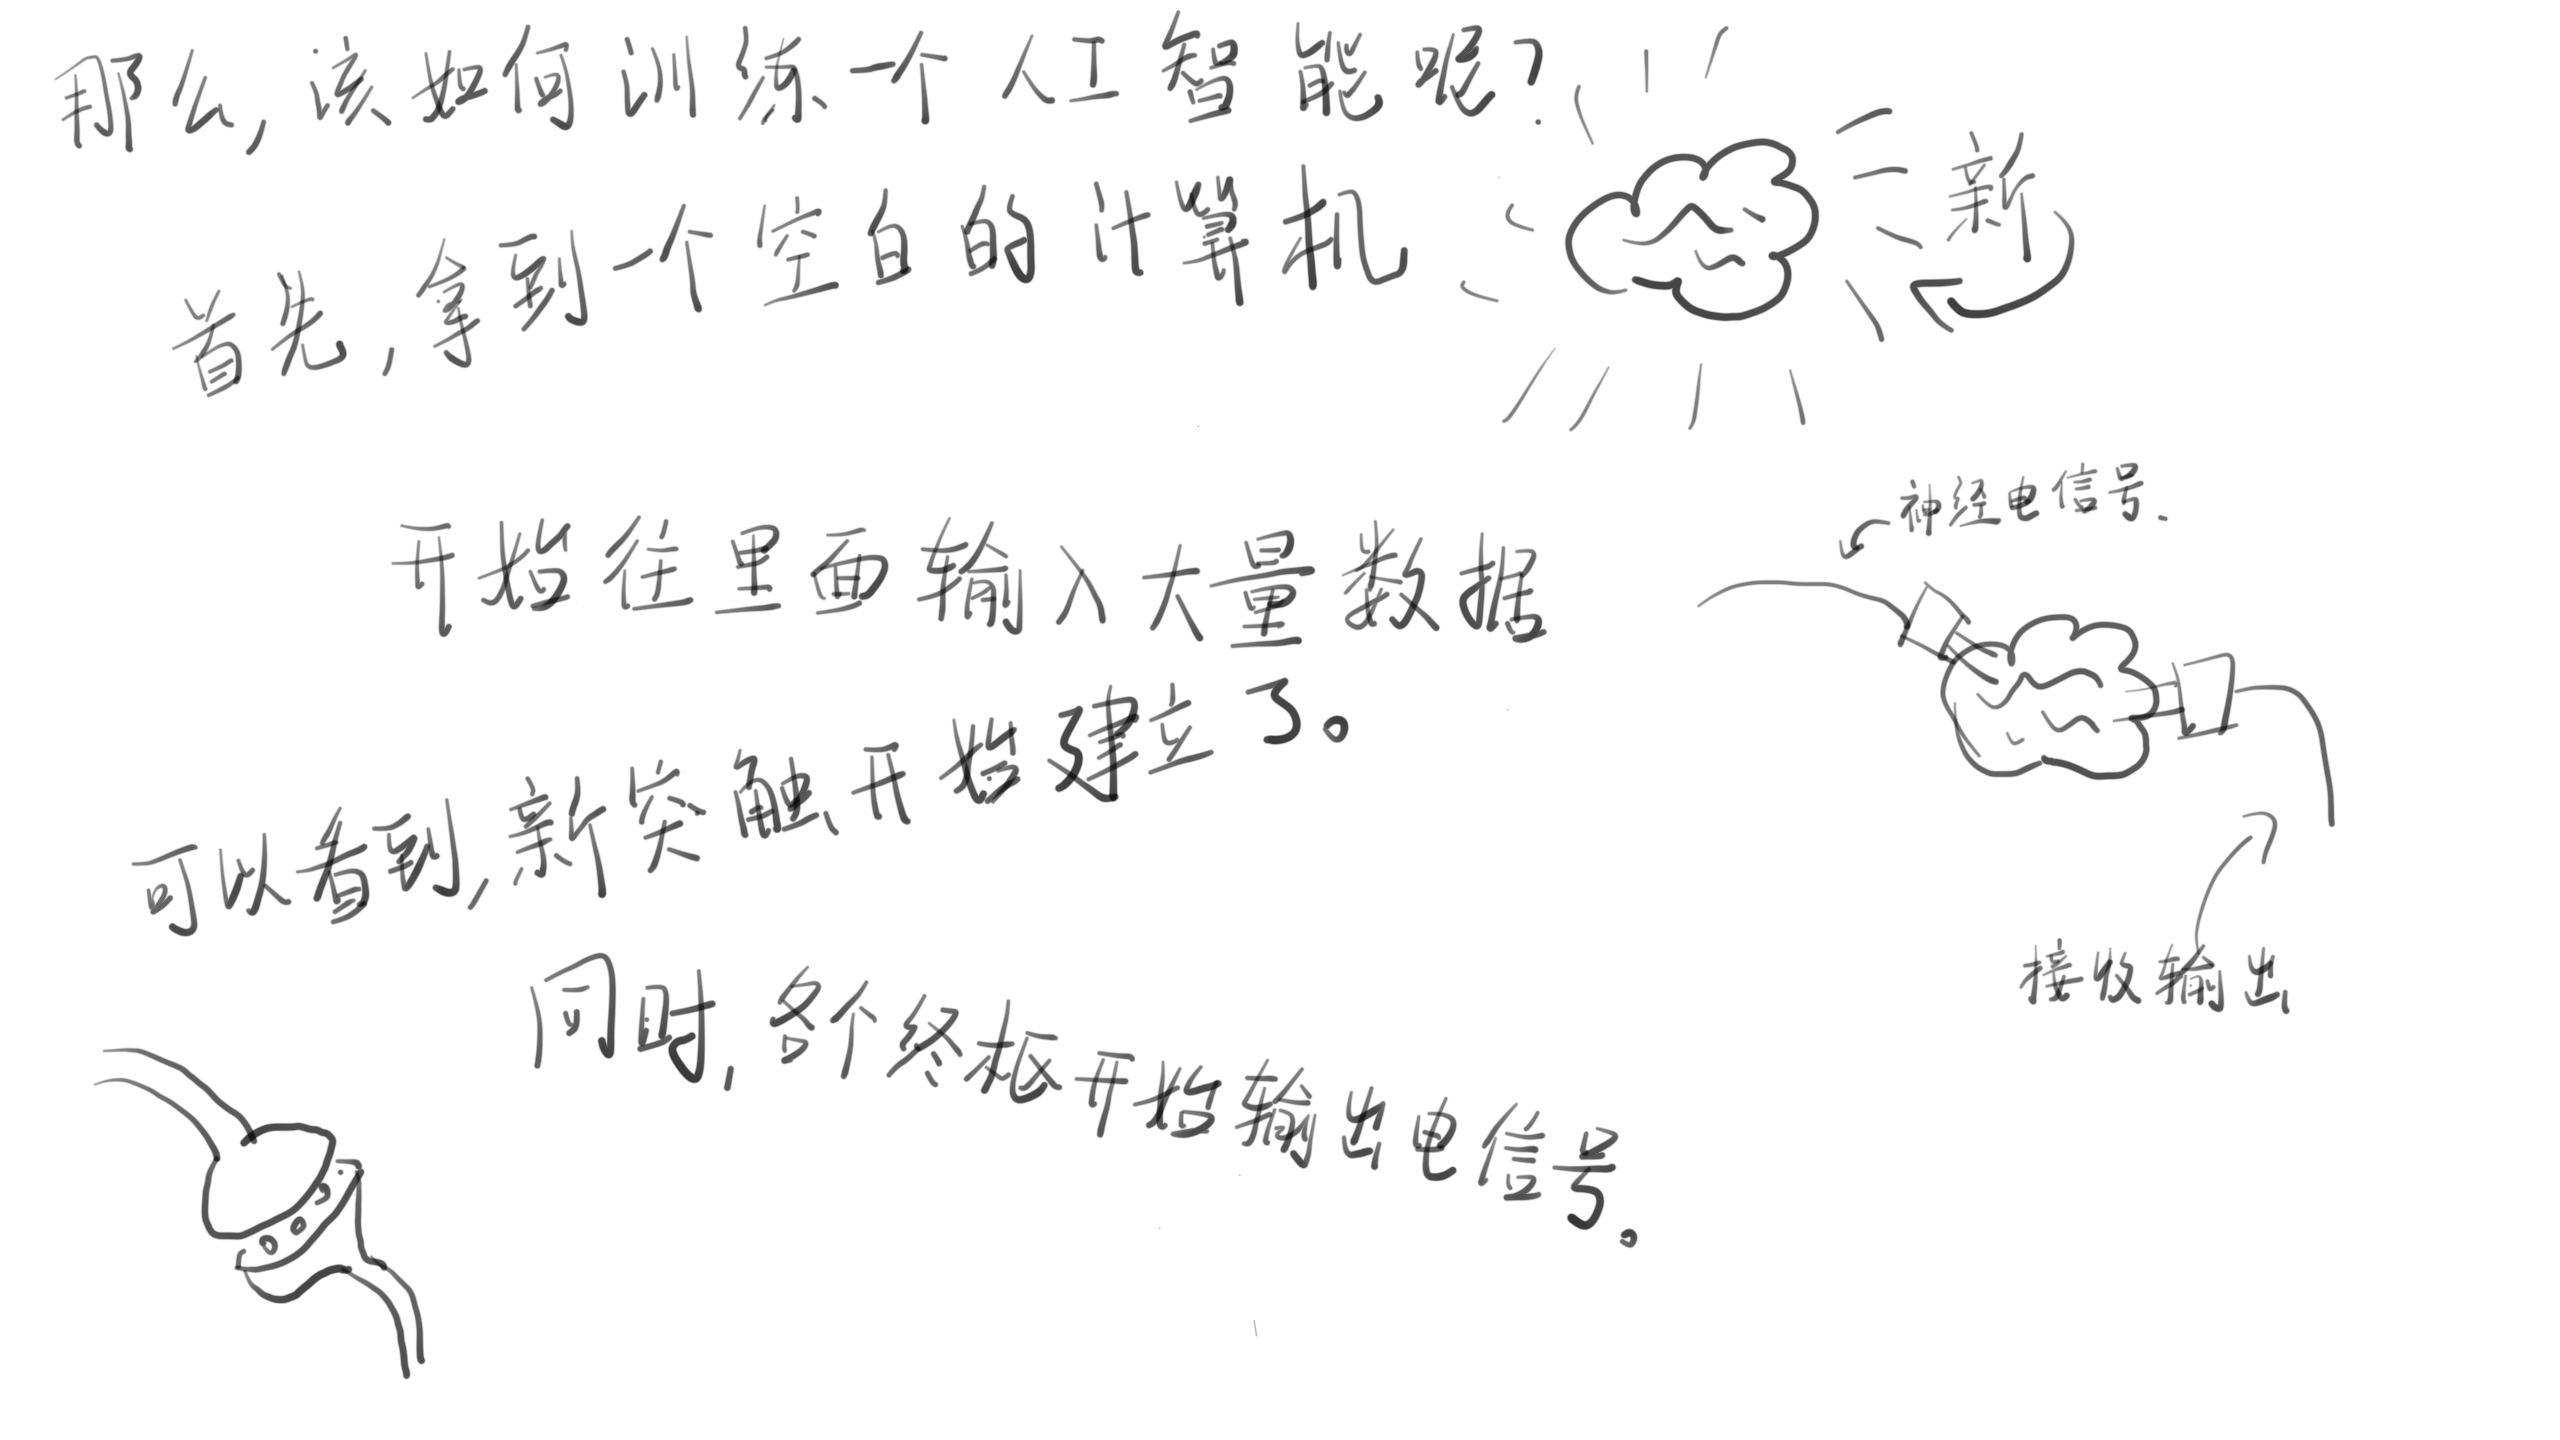 那么,该如何训练一个人工智能呢?
首先,拿到一个空白的计算机
新
神经电信号.
开始往里面输入大量数据
可以看到,新突触开始建立了。
接收输出
同时,各个终枢开始输出电信号。